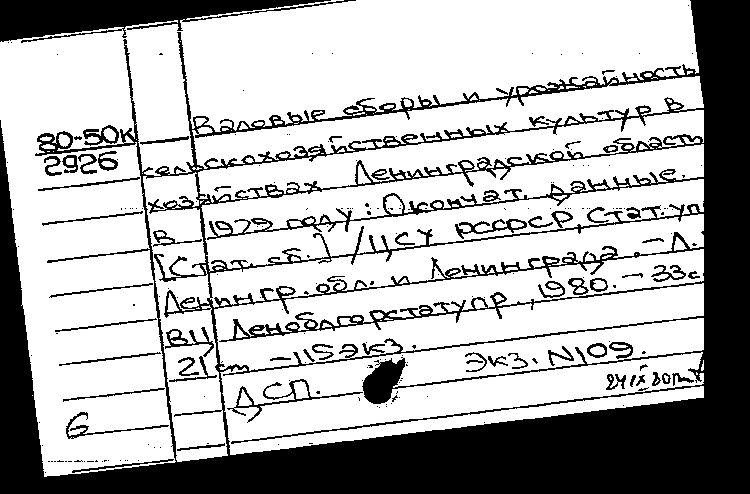 80-50к
2926
Валовые сборы и урожайность
сельскохозяйственных культур в
хозяйствах Ленинградской область
в 1979 году: Окончат. данные.
[Стат. сб.] /ЦСУ РСФСР, Стат. уп
Ленингр. обл. и Ленинграда. - Л.:
Леноблгорстатупр, 1980. - 33с.
21 cm - 115 экз.
ДСП. Экз. N109.
6